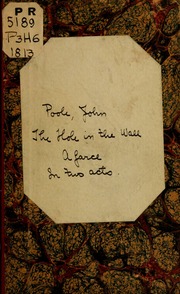 PR
5189
P3H6
1813
Poole, John
The Hole in the Wall
A farce
In two acts.